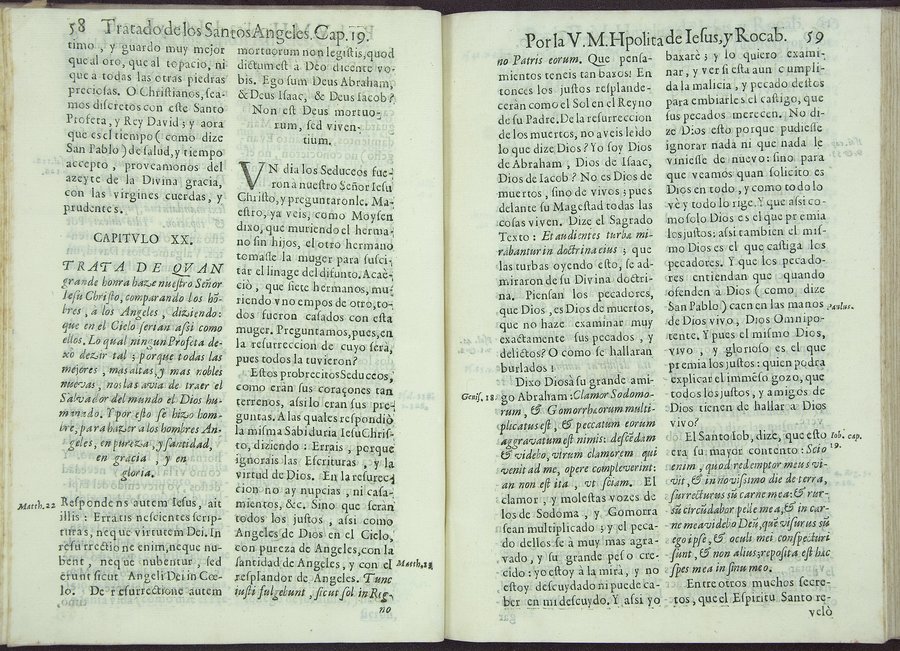 58 Tratado de los Santos Angeles. Cap. 19.
timo, y guardo muy mejor
que al oro, que al topacio, ni
que a todas las otras piedras
preciosas. O Christianos, sea-
mos discretos con este Santo
Profeta, y Rey David; y aora
que es el tiempo (como dize
San Pablo) de salud, y tiempo
accepto, proveamonos del
azeyte de la Divina gracia,
con las virgines cuerdas, y
prudentes.
CAPITVLO XX.
TRATA DE QVAN
grande honra haze nuestro Señor
Iesu Christo, comparando los hõ-
bres, a los Angeles, diziendo:
que en el Cielo serian assi como
ellos. Lo qual ningun Profeta de-
xò dezir tal; porque todas las
mejores, mas altas, y mas nobles
nuevas, nos las avia de traer el
Salvador del mundo el Dios hu-
manado. Y por esto se hizo hom-
bre, para hazer a los hombres An-
geles, en pureza, y santidad,
en gracia, y en
gloria.
Matth. 22
Respondens autem Iesus, ait
illis: Erratis nescientes scrip-
turas, neque virtutem Dei. In
resurrectione enim, neque nu-
bent, neque nubentur, sed
erunt sicut Angeli Dei in Coe-
lo. De resurrectione autem
mortuorum non legistis, quod
dictum est à Deo dicente vo-
bis. Ego sum Deus Abraham,
& Deus Isaac, & Deus Iacob?
Non est Deus mortuo-
rum, sed viven-
tium.
VN dia los Seduceos fue-
ron a nuestro Señor Iesu
Christo, y preguntaronle. Ma-
estro, ya veis, como Moysen
dixo, que muriendo el herma-
no sin hijos, el otro hermano
tomasse la muger para susci-
tar el linage del difunto. Acae-
ciò, que siete hermanos, mu-
riendo vno empos de otro, to-
dos fueron casados con esta
muger. Preguntamos, pues, en
la resurreccion de cuyo serà,
pues todos la tuvieron?
Estos probrecitos Seduceos,
como eran sus coraçones tan
terrenos, assi lo eran sus pre-
guntas. A las quales respondiò
la misma Sabiduria Iesu Chris-
to, diziendo: Errais, porque
ignorais las Escrituras, y la
virtud de Dios. En la resurrec-
cion no ay nupcias, ni casa-
mientos, &c. Sino que seran
todos los justos, assi como
Angeles de Dios en el Cielo,
con pureza de Angeles, con la
santidad de Angeles, y con el
Matth. 13
resplandor de Angeles. Tunc
iusti fulgebunt, sicut sol in Reg-
no
Por la V. M. Hpolita de Iesus, y Rocab. 59
no Patris eorum. Que pensa-
mientos teneis tan baxos! En
tonces los justos resplande-
ceràn como el Sol en el Reyno
de su Padre. De la resurreccion
de los muertos, no aveis leido
lo que dize Dios? Yo soy Dios
de Abraham, Dios de Isaac,
Dios de Iacob? No es Dios de
muertos, sino de vivos; pues
delante su Magestad todas las
cosas viven. Dize el Sagrado
Texto: Et audientes turbæ mi-
rabantur in doctrina eius; que
las turbas oyendo esto, se ad-
miraron de su Divina doctri-
na. Piensan los pecadores,
que Dios, es Dios de muertos,
que no haze examinar muy
exactamente sus pecados, y
delictos? O como se hallaran
burlados!
Dixo Dios à su grande ami-
Genes. 18.
go Abraham: Clamor Sodomo-
rum, & Gomorrhæorum multi-
plicatus est, & peccatum eorum
aggravatum est nimis: descẽdam
& videbo, vtrum clamorem qui
venit ad me, opere compleverint:
an non est ita, vt sciam. El
clamor, y molestas vozes de
los de Sodoma, y Gomorra
sean multiplicado; y el peca-
do dellos se à muy mas agra-
vado, y su grande peso cre-
cido: yo estoy à la mira, y no
estoy descuydado ni puede ca-
ber en mi descuydo. Y assi yo
baxarè; y lo quiero exami-
nar, y ver si esta aun cumpli-
da la malicia, y pecado destos
para embiarles el castigo, que
sus pecados merecen. No di-
ze Dios esto porque pudiesse
ignorar nada ni que nada le
viniesse de nuevo: sino para
que veamos quan solicito es
Dios en todo, y como todo lo
vè y todo lo rige. Y que assi co-
mo solo Dios es el que premia
los justos: assi tambien el mis-
mo Dios es el que castiga los
pecadores. Y que los pecado-
res entiendan que quando
ofenden à Dios (como dize
San Pablo) caen en las manos
Paulus.
de Dios vivo, Dios Omnipo-
tente. Y pues el mismo Dios,
vivo, y glorioso es el que
premia los justos: quien podra
explicar el immẽso gozo, que
todos los justos, y amigos de
Dios tienen de hallar a Dios
vivo?
El Santo Iob, dize, que esto
Iob. cap. 19.
era su mayor contento: Scio
enim, quod redemptor meus vi-
vit, & in novissimo die de terra,
surrecturus sũ carne mea: & rur-
sũ circũdabor pelle mea, & in car-
ne mea videbo Deũ, que visurus sũ
ego ipse, & oculi mei conspecturi
sunt, & non alius; reposita est hæc
spes mea in sinu meo.
Entre otros muchos secre-
tos, que el Espiritu Santo re-
velò